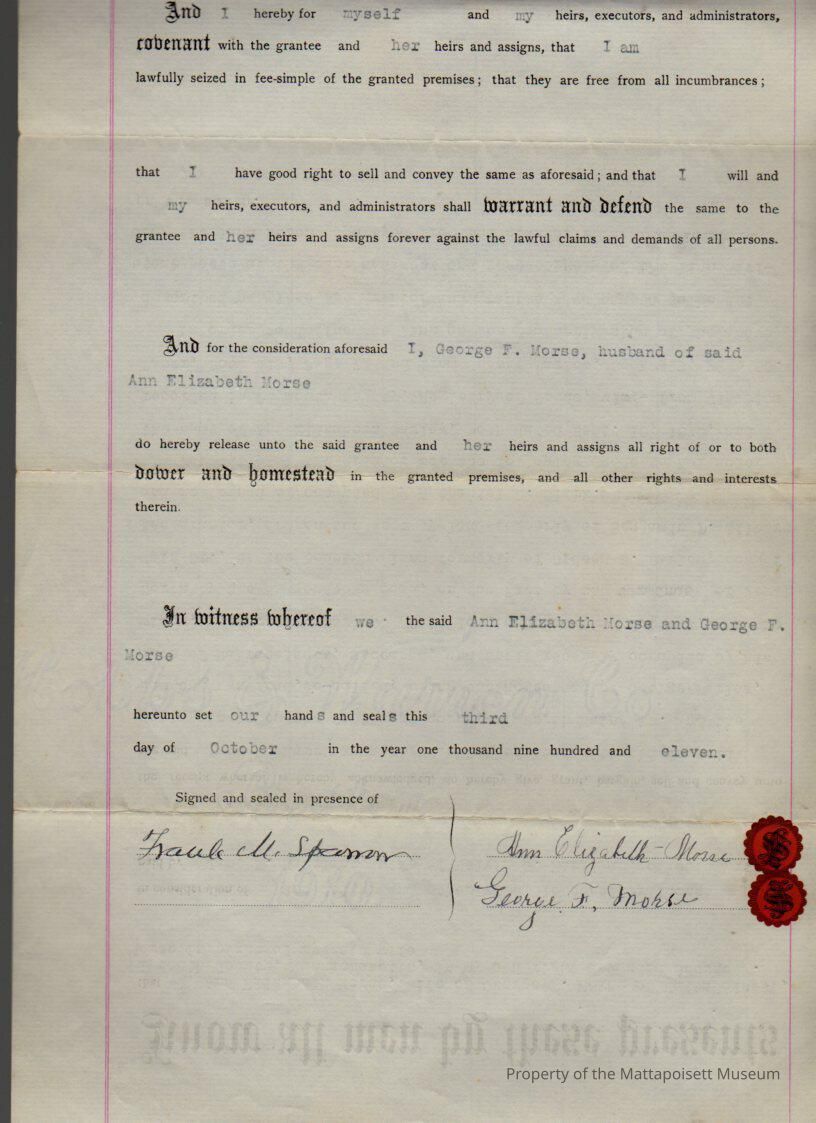 And I hereby for myself and my heirs, executors, and administrators,
covenant with the grantee and her heirs and assigns, that I am
lawfully seized in fee-simple of the granted premises; that they are free from all incumbrances;
that I have good right to sell and convey the same as aforesaid; and that I will and
my heirs, executors, and administrators shall warrant and defend the same to the
grantee and her heirs and assigns forever against the lawful claims and demands of all persons.
And for the consideration aforesaid I, George F. Morse, husband of said
Ann Elizabeth Morse
do hereby release unto the said grantee and her heirs and assigns all right of or to both
dower and homestead in the granted premises, and all other rights and interests
therein.
In witness whereof we the said Ann Elizabeth Morse and George F.
Morse
hereunto set our hands and seals this third
day of October in the year one thousand nine hundred and eleven.
Signed and sealed in presence of
Frank M. Sparrow
Ann Elizabeth Morse
George F. Morse
Know all men by these presents
Property of the Mattapoisett Museum